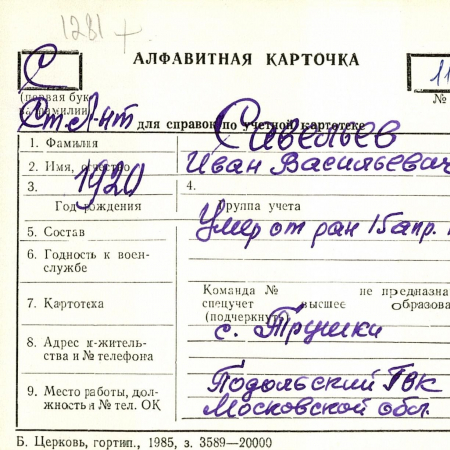 1281 +
АЛФАВИТНАЯ КАРТОЧКА
С
11
(первая бук
фамилии)
№
Ст. Л-нт
для справок по учетной картотеке
Савельев
1. Фамилия
2. Имя, отчество Иван Васильевич
3. 1920
4.
Год рождения
Группа учета
5. Состав Умер от ран 15 апр.
6. Годность к воен-
службе
Команда № не предназна
7. Картотека спецучет высшее образова
(подчеркнуть)
8. Адрес ж-житель-
ства и № телефона
с.
9. Место работы, дол-
жность и № тел. ОК
Подольский ГВК
Московской обл.
Б. Церковь, гортип., 1985, з. 3589—20000